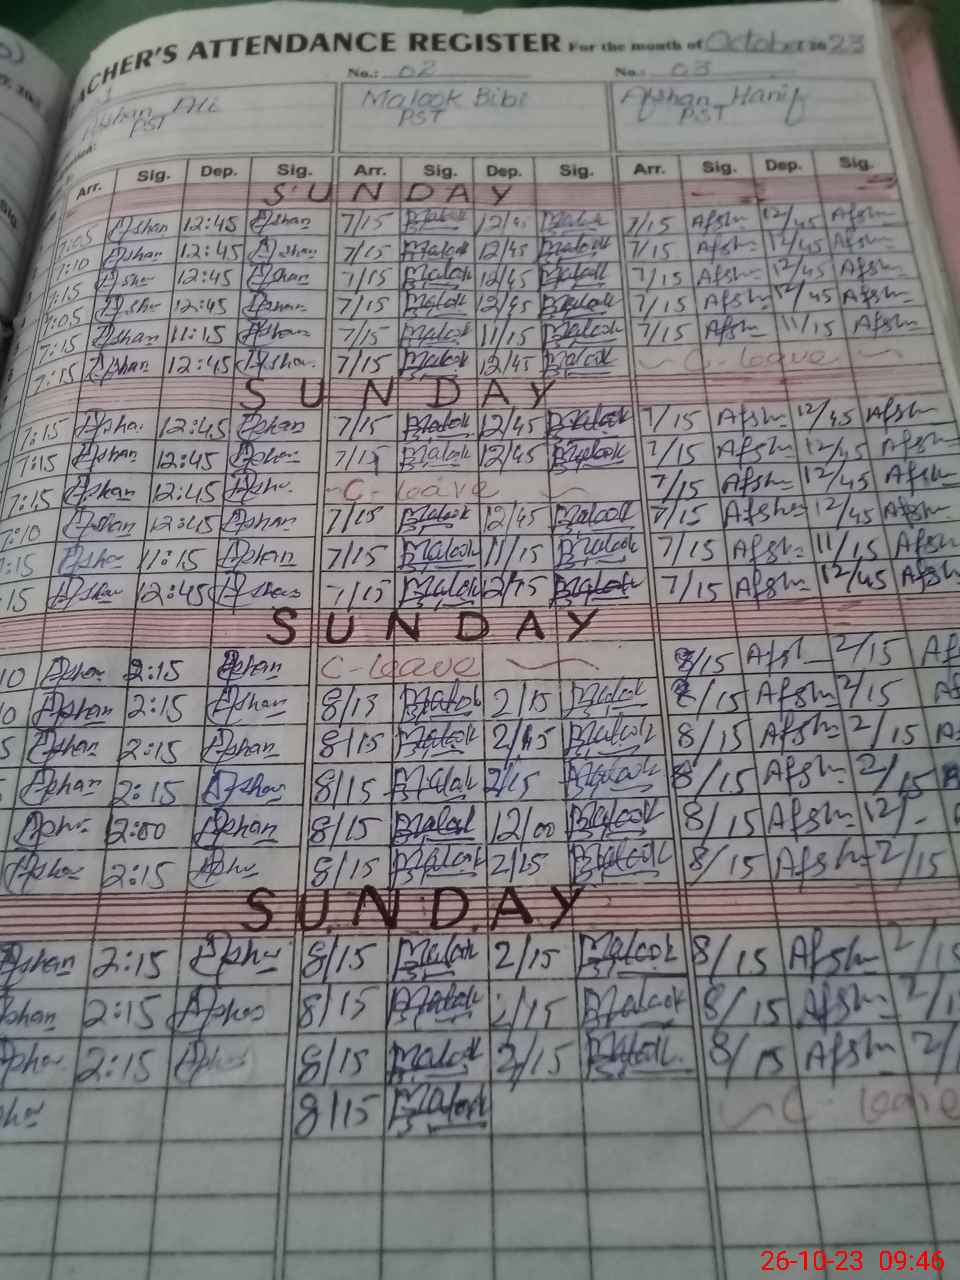 TEACHER'S ATTENDANCE REGISTER For the month of October 2023
No.: 02 No.: 03
Afshan Ali Malook Bibi Afshan Hanif
PST PST PST
Arr. Sig. Dep. Sig. Arr. Sig. Dep. Sig. Arr. Sig. Dep. Sig.
SUNDAY
7:05 Afshan 12:45 Afshan 7/15 Malook 12/45 Malook 7/15 Afshan 12/45 Afshan
7:10 Afshan 12:45 Afshan 7/15 Malook 12/45 Malook 7/15 Afshan 12/45 Afshan
7:15 Afshan 12:45 Afshan 7/15 Malook 12/45 Malook 7/15 Afshan 12/45 Afshan
7:05 Afshan 12:45 Afshan 7/15 Malook 12/45 Malook 7/15 Afshan 12/45 Afshan
7:15 Afshan 11:15 Afshan 7/15 Malook 11/15 Malook 7/15 Afshan 11/15 Afshan
7:15 Afshan 12:45 Afshan 7/15 Malook 12/45 Malook C-leave
SUNDAY
7:15 Afshan 12:45 Afshan 7/15 Malook 12/45 Malook 7/15 Afshan 12/45 Afshan
7:15 Afshan 12:45 Afshan 7/15 Malook 12/45 Malook 7/15 Afshan 12/45 Afshan
7:15 Afshan 12:45 Afshan C-leave 7/15 Afshan 12/45 Afshan
7:10 Afshan 12:45 Afshan 7/15 Malook 12/45 Malook 7/15 Afshan 12/45 Afshan
7:15 Afshan 11:15 Afshan 7/15 Malook 11/15 Malook 7/15 Afshan 11/15 Afshan
:15 Afshan 12:45 Afshan 7/15 Malook 12/45 Malook 7/15 Afshan 12/45 Afshan
SUNDAY
10 Afshan 2:15 Afshan C-leave 8/15 Afshan 2/15 Af
0 Afshan 2:15 Afshan 8/13 Malook 2/15 Malook 8/15 Afshan 2/15 Af
5 Afshan 2:15 Afshan 8/15 Malook 2/45 Malook 8/15 Afshan 2/15 A
Afshan 2:15 Afshan 8/15 Malook 2/15 Malook 8/15 Afshan 2/15
Afshan 12:00 Afshan 8/15 Malook 12/00 Malook 8/15 Afshan 12/-
Afshan 2:15 Afshan 8/15 Malook 2/15 Malook 8/15 Afshan 2/15
SUNDAY
Afshan 2:15 Afshan 8/15 Malook 2/15 Malook 8/15 Afshan 2/15
Afshan 2:15 Afshan 8/15 Malook 2/15 Malook 8/15 Afshan 2/1
Afshan 2:15 Afshan 8/15 Malook 2/15 Malook 8/15 Afshan 2/
8/15 Malook C-leave
26-10-23 09:46